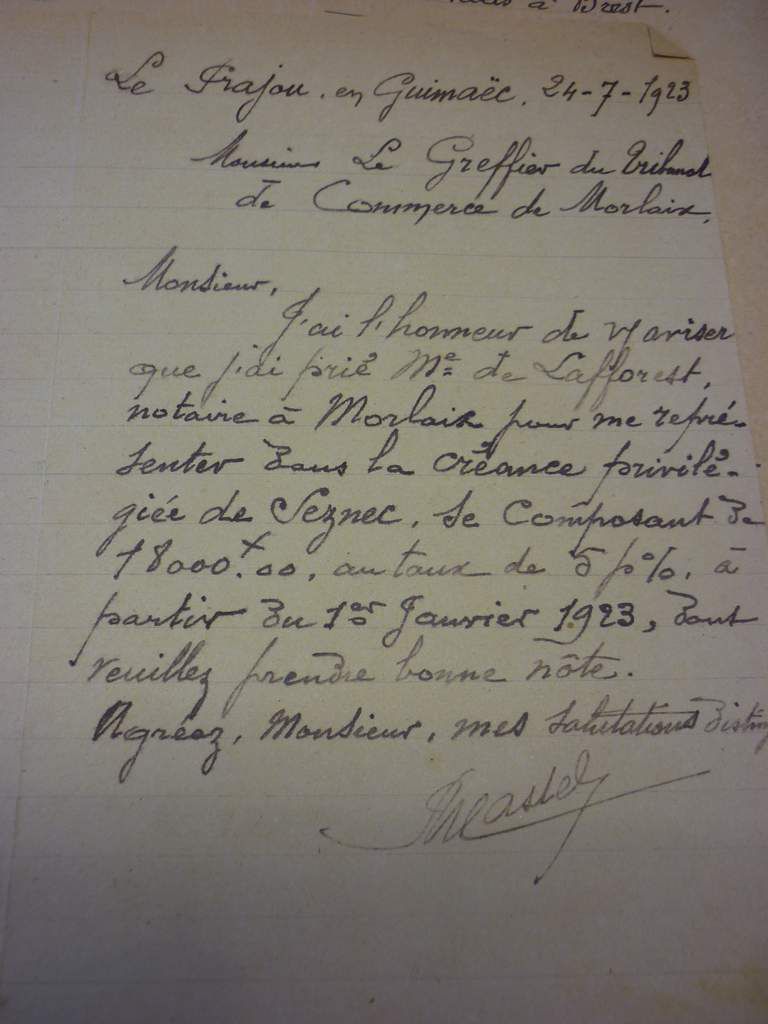 à Brest.
Le Prajou. en Guimaëc. 24-7-1923
Monsieur Le Greffier du Tribunal
de Commerce de Morlaix.
Monsieur,
J'ai l'honneur de v/ aviser
que j'ai prié Me de Lafforest,
notaire à Morlaix pour me repré-
senter dans la créance privilé-
giée de Seznec, se composant de
18000.00, au taux de 5 p%, à
partir du 1er Janvier 1923, dont
veuillez prendre bonne nôte.
Agréez, Monsieur, mes salutations disting